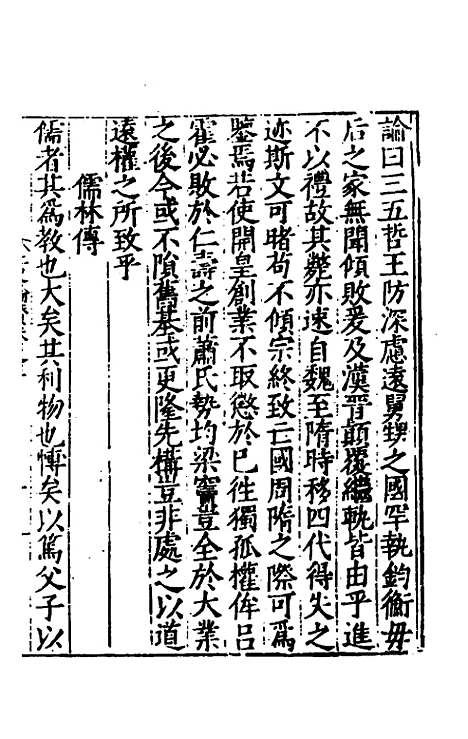 論曰三五哲王防深慮遠舅甥之國罕執鈞衡母
后之家無聞傾敗爰及漢晉顛覆繼軌皆由乎進
不以禮故其斃亦速自魏至隋時移四代得失之
迹斯文可睹苟不傾宗終致亡國周隋之際可為
鑒焉若使開皇創業不取懲於已徃獨孤權侔吕
霍必敗於仁壽之前蕭氏勢均梁竇豈全於大業
之後今或不隕舊基或更隆先構豈非處之以道
遠權之所致乎
儒林傳
儒者其爲教也大矣其利物也慱矣以篤父子以